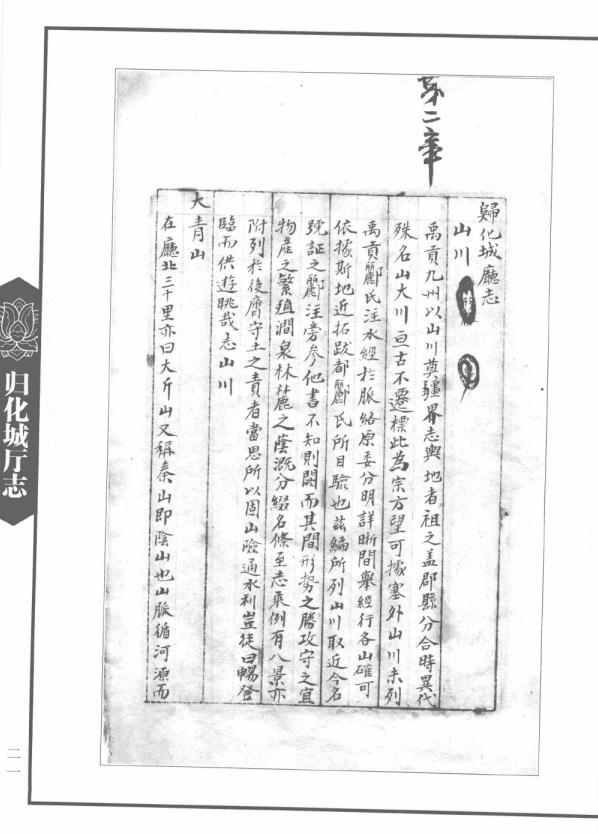 第二章
歸化城廳志
山川
禹貢九州以山川奠疆界志輿地者祖之盖郡縣分合時異代
殊名山大川亘古不遷標此為宗方望可據塞外山川未列
禹貢酈氏注水經於脈絡原委分明詳晰間舉經行各山確可
依據斯地近拓跋都酈氏所目驗也兹編所列山川取近今名
號証之酈注旁參他書不知則闕而其間形势之勝攻守之宜
物產之繁殖澗泉林麓之蔭溉分綴名條至志乘例有八景亦
附列於後膺守土之責者當思所以固山險通水利豈徒曰暢登
臨而供遊眺哉志山川
大青山
在廳北三十里亦曰大斤山又稱秦山即陰山也山脈循河源而
归化城厅志
二一